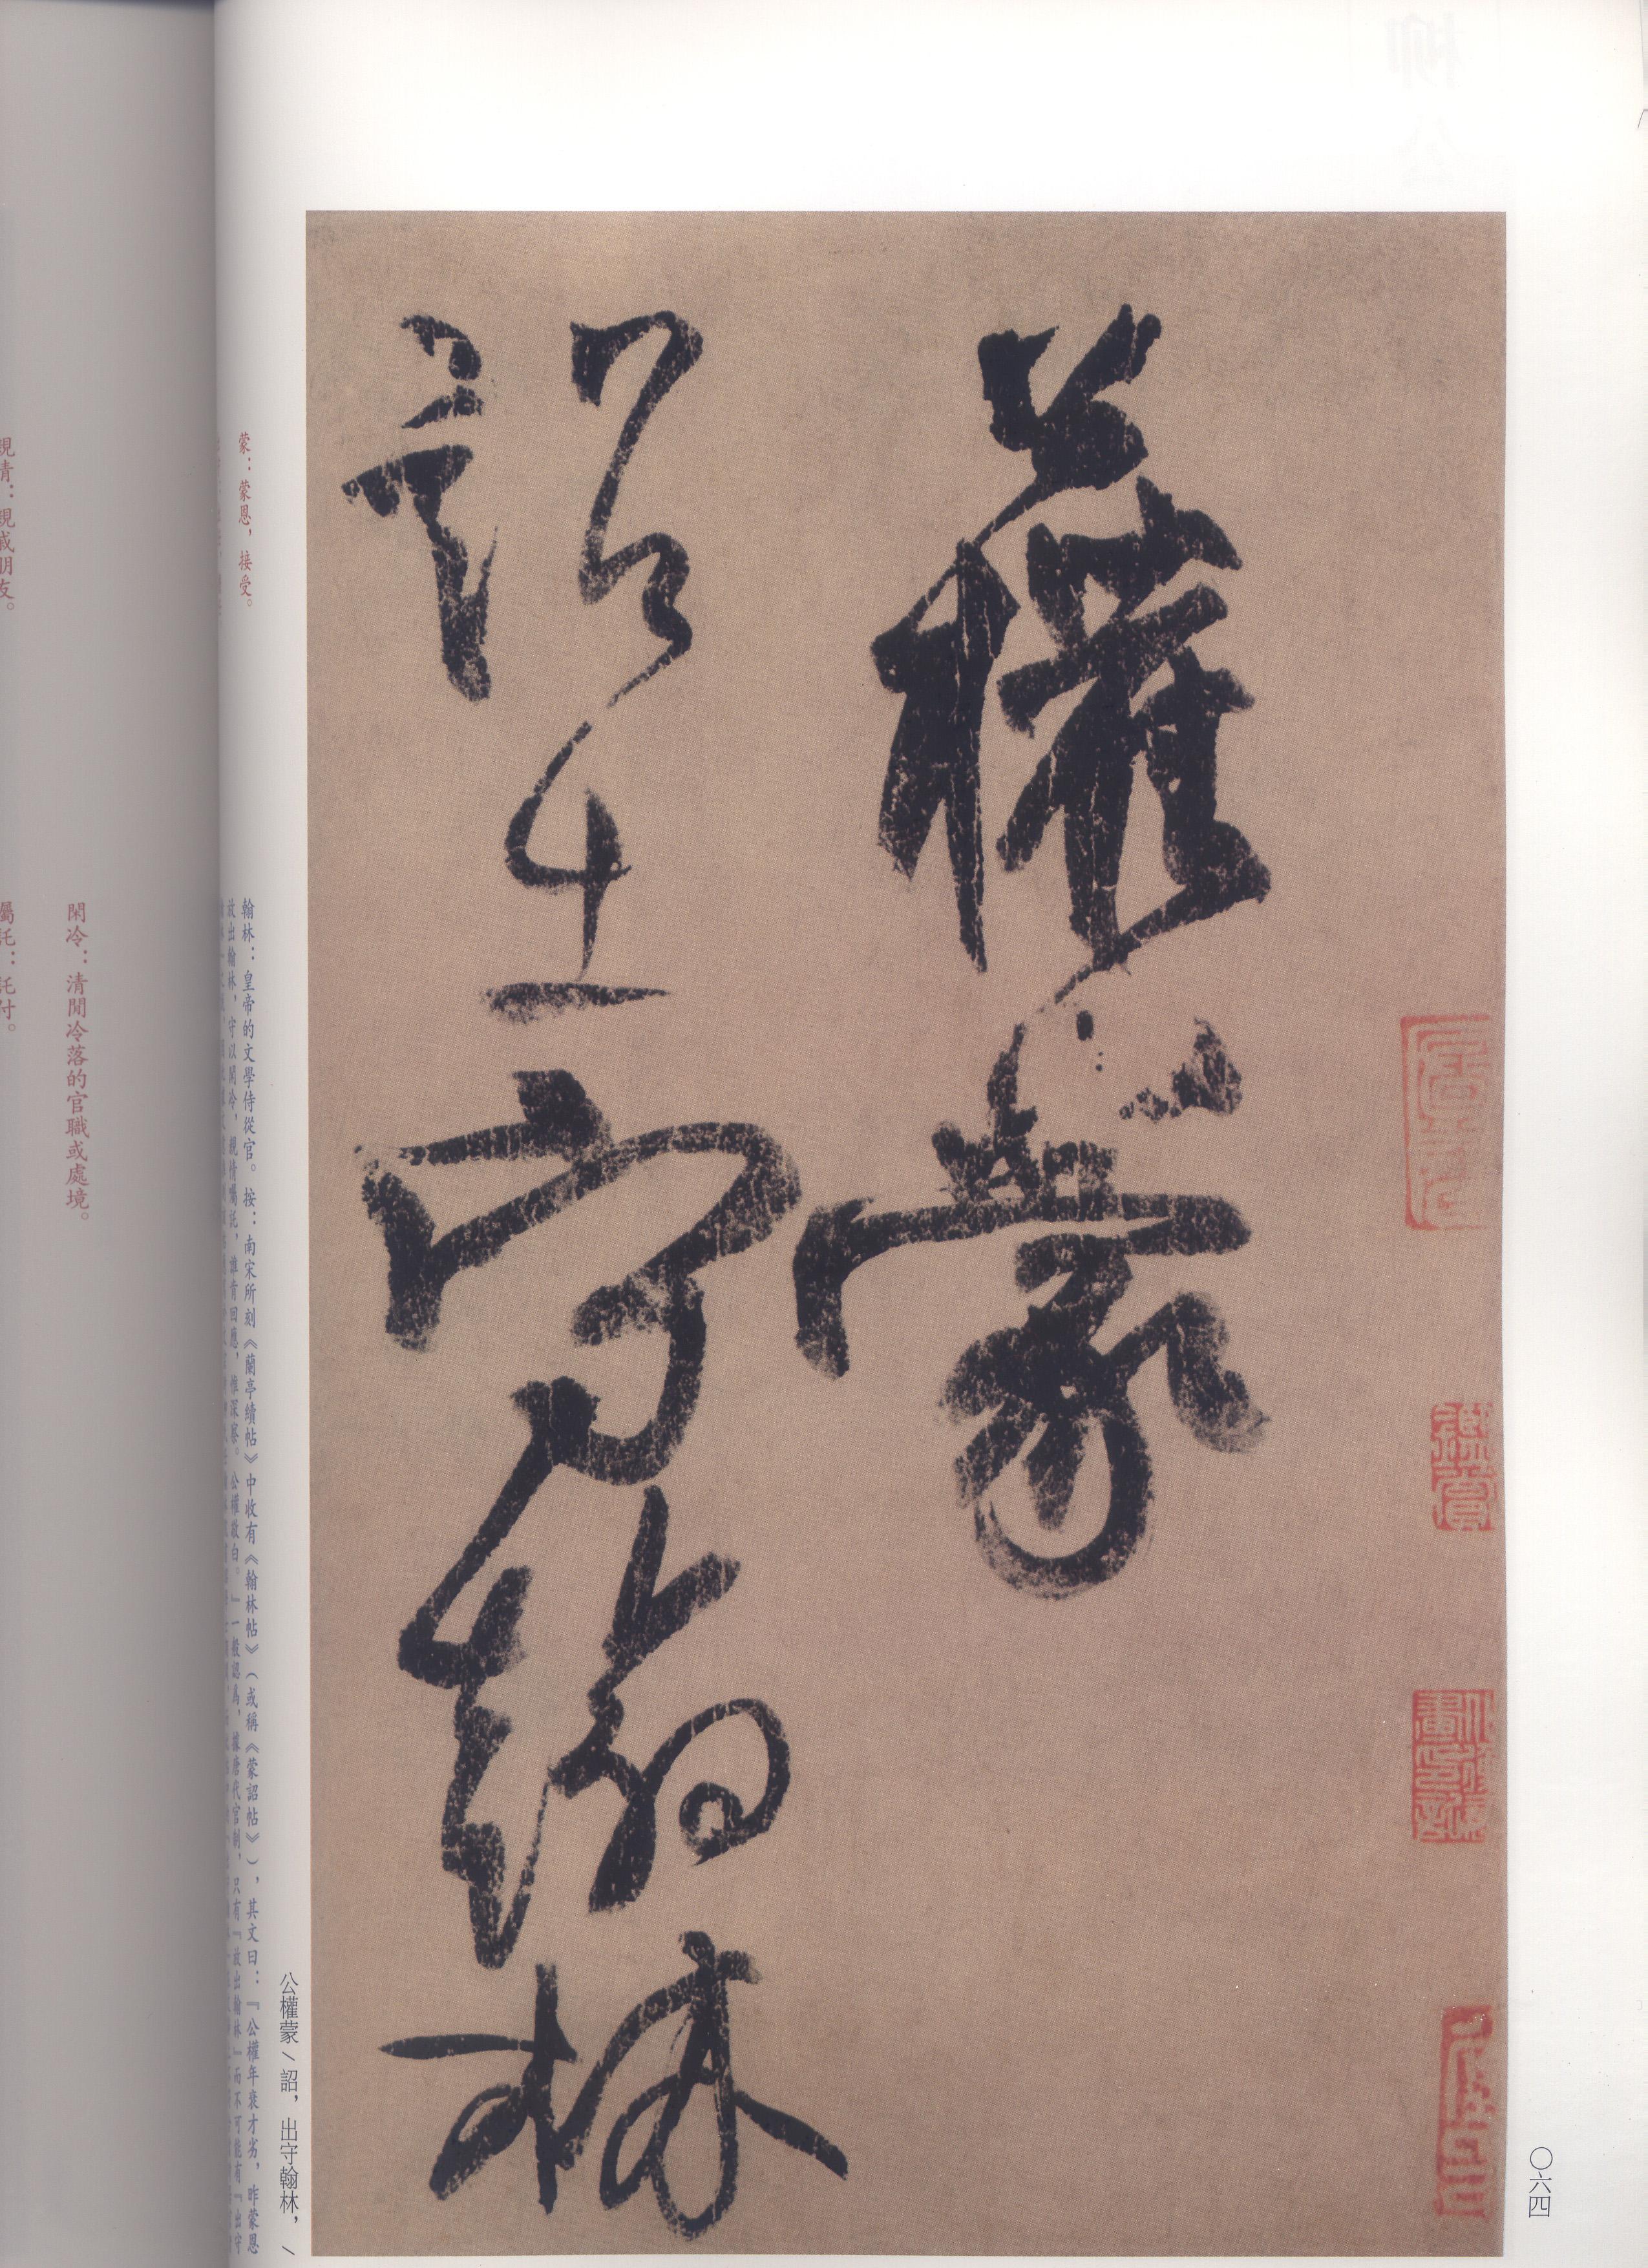 公權蒙
詔出守翰林
公權蒙\詔，出守翰林，\
蒙：蒙恩，接受。
翰林：皇帝的文學侍從官。按：南宋所刻《蘭亭續帖》中收有《翰林帖》（或稱《蒙詔帖》），其文曰：『公權年衰才劣，昨蒙恩
放出翰林，守以閑冷，親情囑託，誰肯回應，惟深察。公權敬白。』一般認爲，據唐代官制，只有『放出翰林』而不可能有『出守
閑冷：清閒冷落的官職或處境。
親情：親戚朋友。
屬託：託付。
鑑賞
〇六四